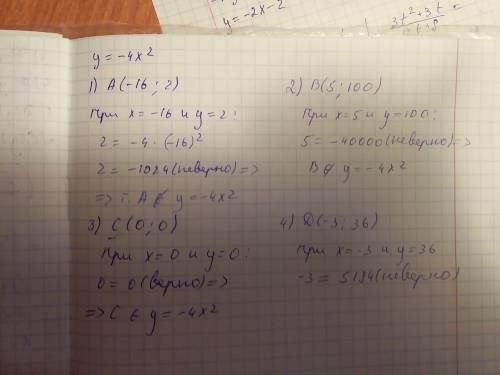 y=-2x-2
3t²+3t
y = -4x²
1) A(-16; 2)
При x=-16 и y=2:
2 = -4 · (-16)²
2 = -1024 (неверно) =>
=> т. A ∉ y = -4x²
2) B(5; 100)
При x=5 и y=100:
5 = -40000 (неверно) =>
B ∉ y = -4x²
3) C(0; 0)
При x=0 и y=0:
0 = 0 (верно) =>
=> C ∈ y = -4x²
4) D(-3; 36)
При x=-3 и y=36
-3 = 5184 (неверно)